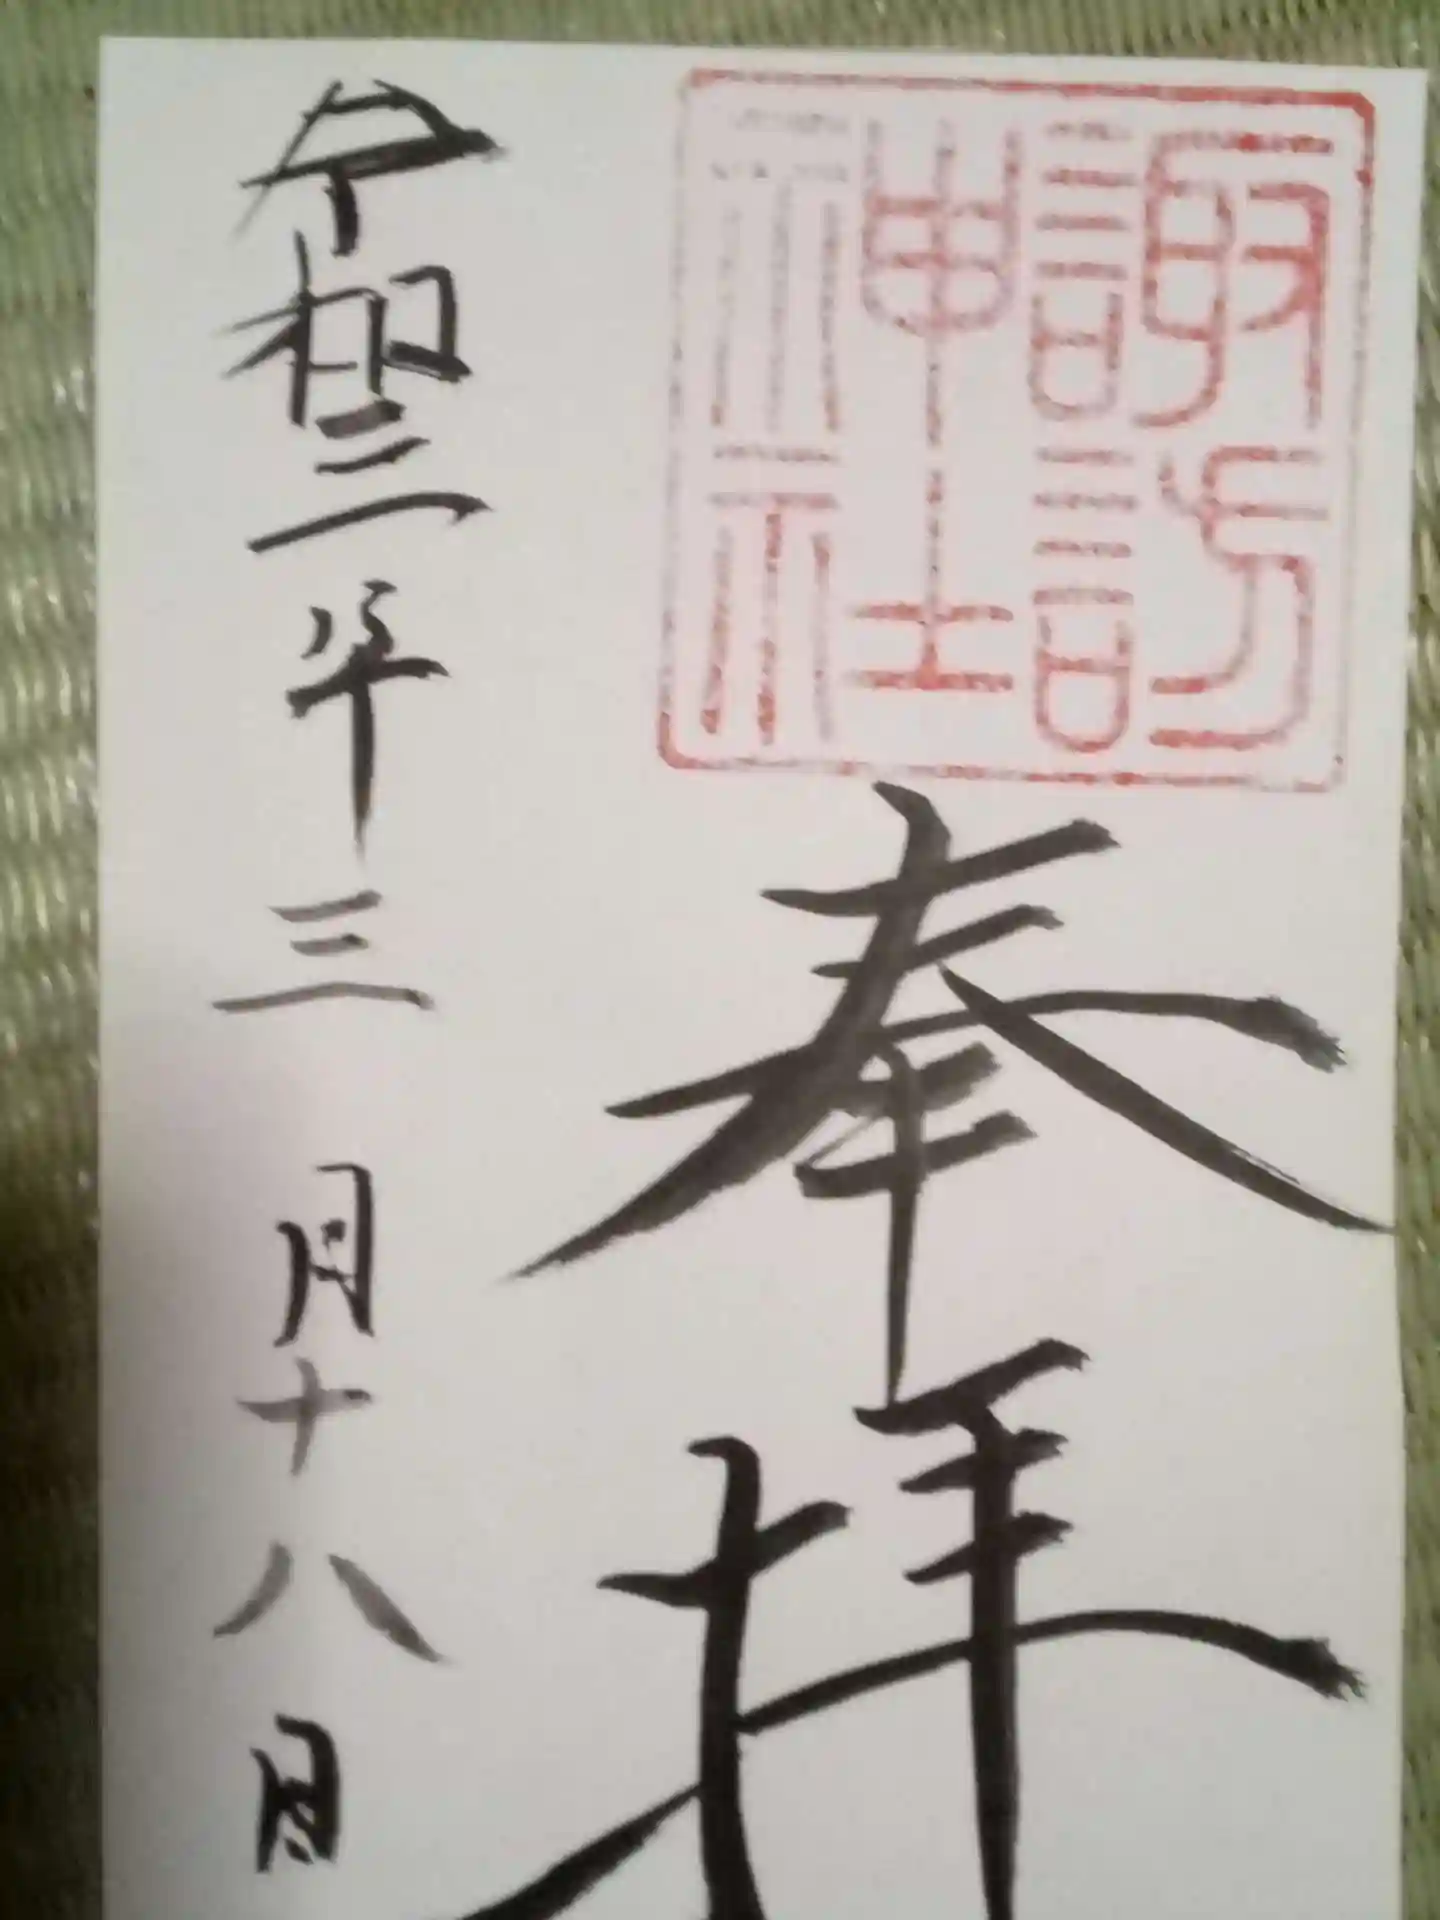 諏訪
神社
奉拝
令和三年三月十八日